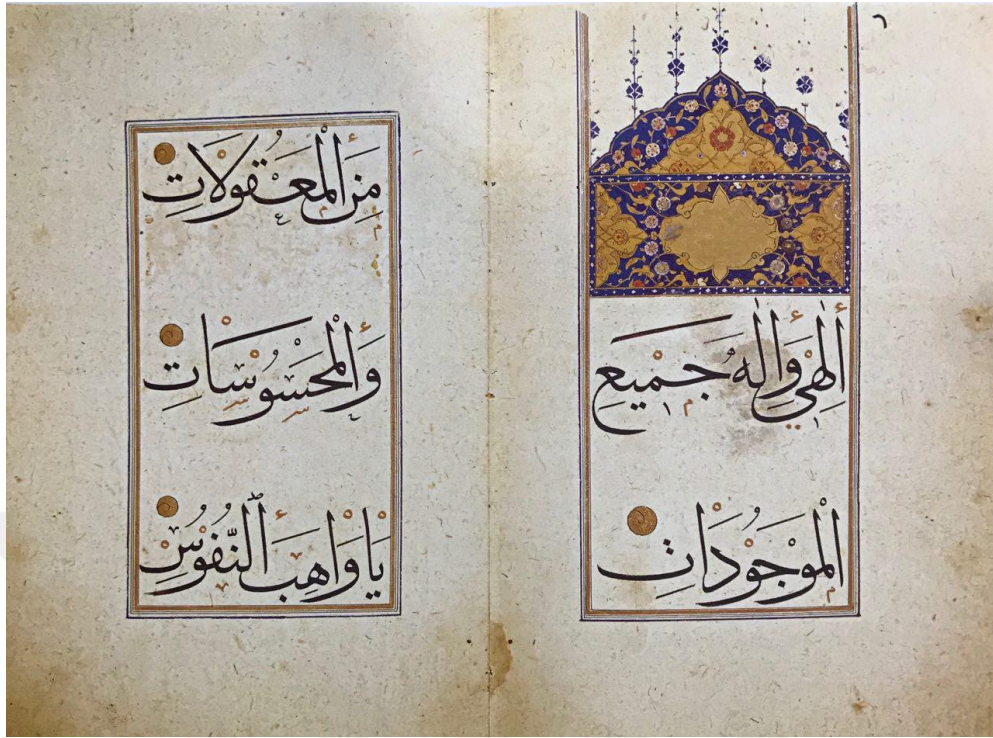 أَلٰهِي وَإِلٰهُ جَمِيعِ
الْمَوْجُودَاتِ
مِنَ الْمَعْقُولَاتِ
وَالْمَحْسُوسَاتِ
يَا وَاهِبَ النُّفُوسِ